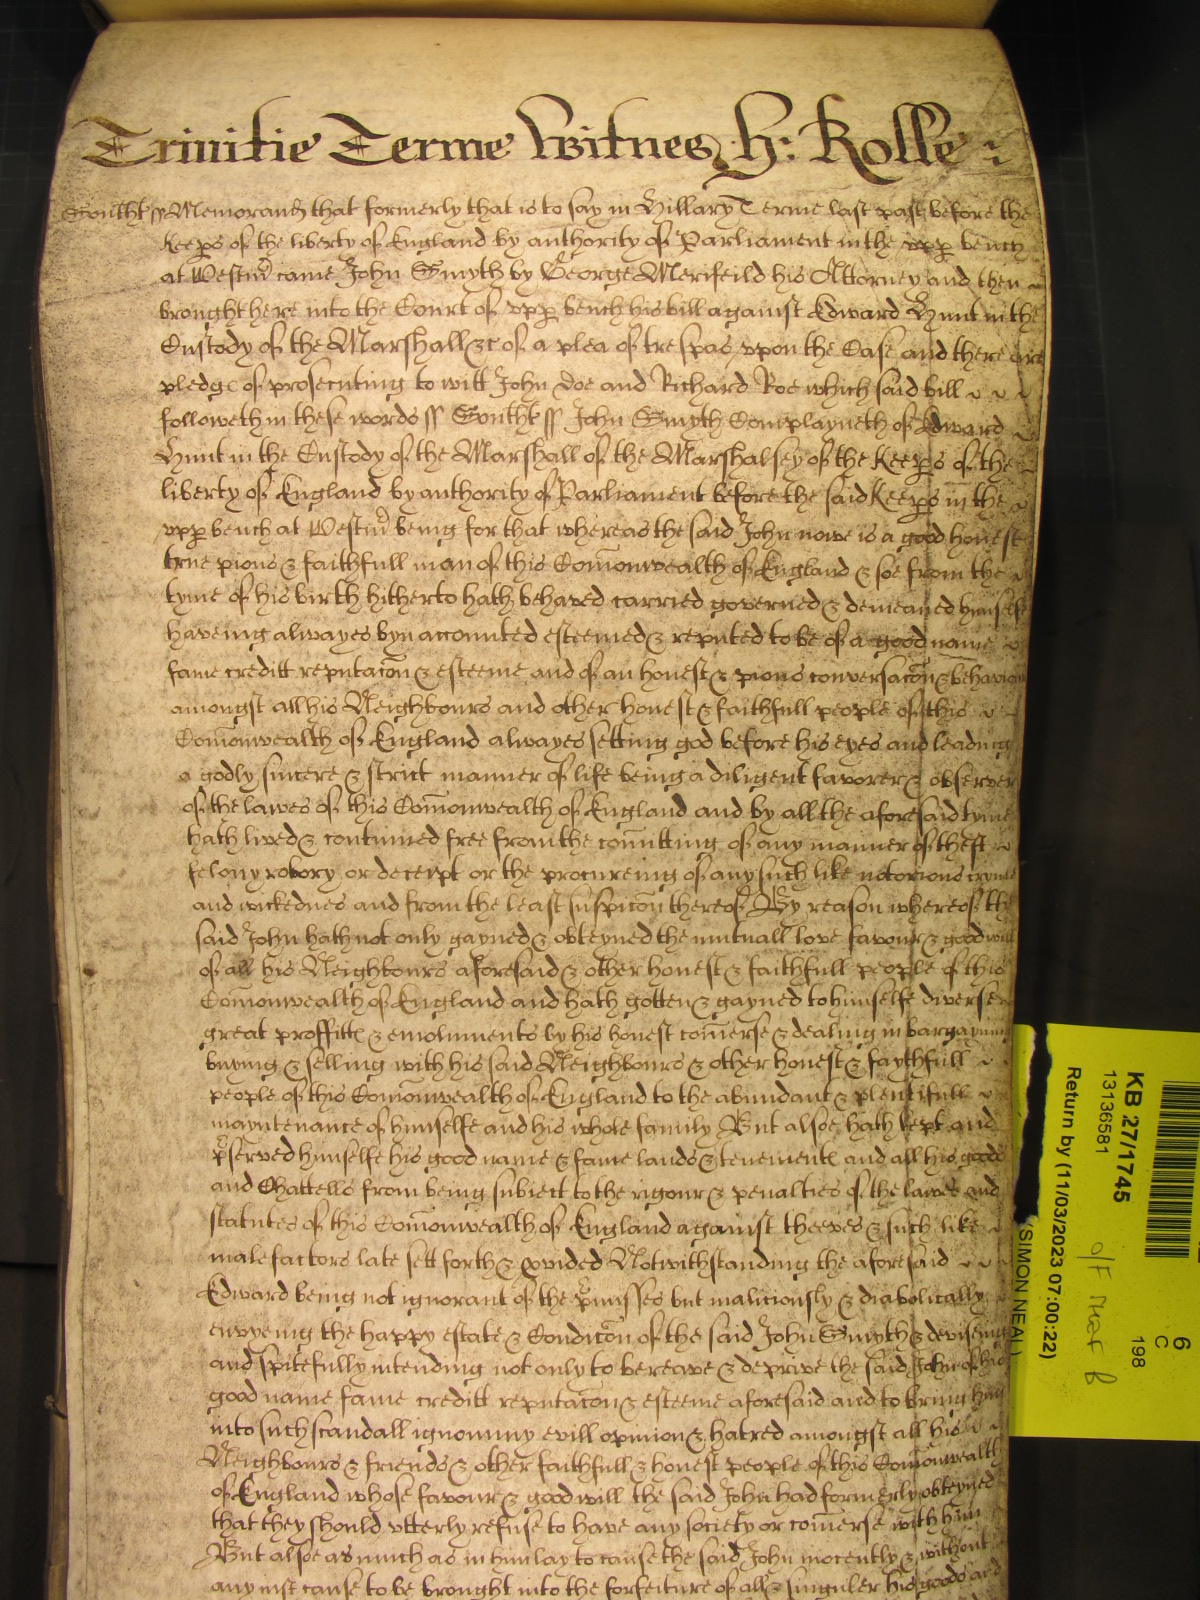 Trinitie Terme Witnes H: Rolle
Southt ss Memorand that formerly that is to say in Hillary Terme last past before the
Keeps of the liberty of England by authority of Parliament in the upp bench
at Westm̃ came John Smyth by George Merifeild his Attorney and then
brought here into the Court of upp bench his bill against Edward Hunt in the
Custody of the Marshall &c of a plea of trespas upon the Case and there are
pledge of prosecuting to witt John Doe and Richard Roe which said bill
followeth in these words ss Southt ss John Smyth Complayneth of Edward
Hunt in the Custody of the Marshall of the Marshalsey of the Keeps of the
liberty of England by authority of Parliament before the said Keeps in the
upp bench at Westm̃ being for that whereas the said John nowe is a good honest
true pious & faithfull man of this Com̃onwealth of England & soe from the
tyme of his birth hitherto hath behaved carried governed & demeaned himself
haveing alwayes byn accounted esteemed & reputed to be of a good name
fame creditt reputac̃on & esteeme and of an honest & pious conversac̃on & behaviour
amongst all his Neighbours and other honest & faithfull people of this
Com̃onwealth of England alwayes setting god before his eyes and leading
a godly sincere & strict manner of life being a diligent favorer & observer
of the lawes of this Com̃onwealth of England and by all the aforesaid tyme
hath lived & continued free from the com̃itting of any manner of theft
felony robory or deceipt or the procureing of any such like notorious cryme
and wickednes and from the least suspic̃on thereof By reason whereof the
said John hath not only gayned & obteyned the mutuall love favour & goodwill
of all his Neighbours aforesaid & other honest & faithfull people of this
Com̃onwealth of England and hath gotten & gayned to himselfe diverse
great proffitte & emoluments by his honest com̃erse & dealing in bargayning
buying & selling with his said Neighbours & other honest & faythfull
people of this Com̃onwealth of England to the abundant & plentifull
mayntenance of himselfe and his whole family But alsoe hath kept and
p̃served himselfe his good name & fame lands & tenemente and all his goods
and Chattells from being subiect to the rigour & penalties of the lawes and
statutes of this Com̃onwealth of England against theeves & such like
malefactors late sett forth & pvided Notwithstanding the aforesaid
Edward being not ignorant of the p̃misses but maliciously & diabolically
envyeing the happy estate & Condic̃on of the said John Smyth & deviseing
and spitefully intending not only to bereave & deprive the said John of his
good name fame creditt reputac̃on & esteeme aforesaid and to bring him
into such scandall ignominy evill opinion & hatred amongst all his
Neighbours & friends & other faithfull & honest people of this Com̃onwealth
of England whose favour & good will the said John had formerly obteyned
that they should utterly refuse to have any society or com̃erse with him
But alsoe as much as in him lay to cause the said John inocently & without
any iust cause to be brought into the forfeiture of all & singuler his goods and
KB 27/1745
13136581
Return by (11/03/2023 07:00:22)
(SIMON NEAL)
6
C
198